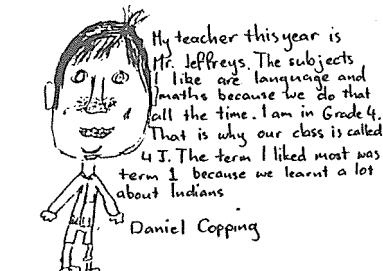 My teacher this year is
Mr. Jeffreys. The subjects
I like are language and
maths because we do that
all the time. I am in Grade 4.
That is why our class is called
4 J. The term I liked most was
term 1 because we learnt a lot
about Indians
Daniel Copping